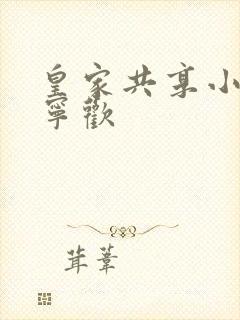 皇家共享小
寧歡
茸葦